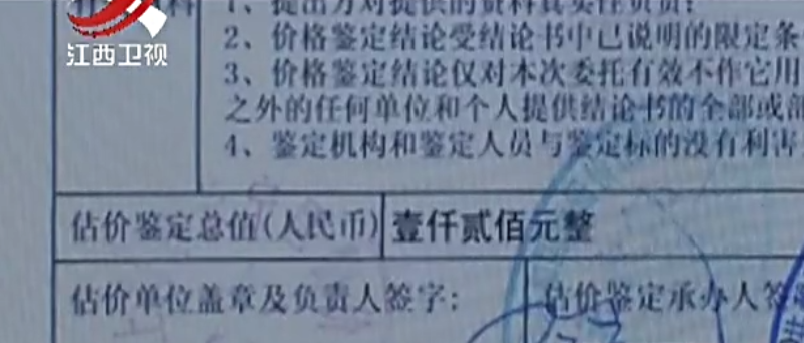 江西卫视
料
1、提出方对提供的资料真实性负责;
2、价格鉴定结论受结论书中已说明的限定条
3、价格鉴定结论仅对本次委托有效不作它用
之外的任何单位和个人提供结论书的全部或部
4、鉴定机构和鉴定人员与鉴定标的没有利害
估价鉴定总值(人民币) 壹仟贰佰元整
估价单位盖章及负责人签字: 估价鉴定承办人签